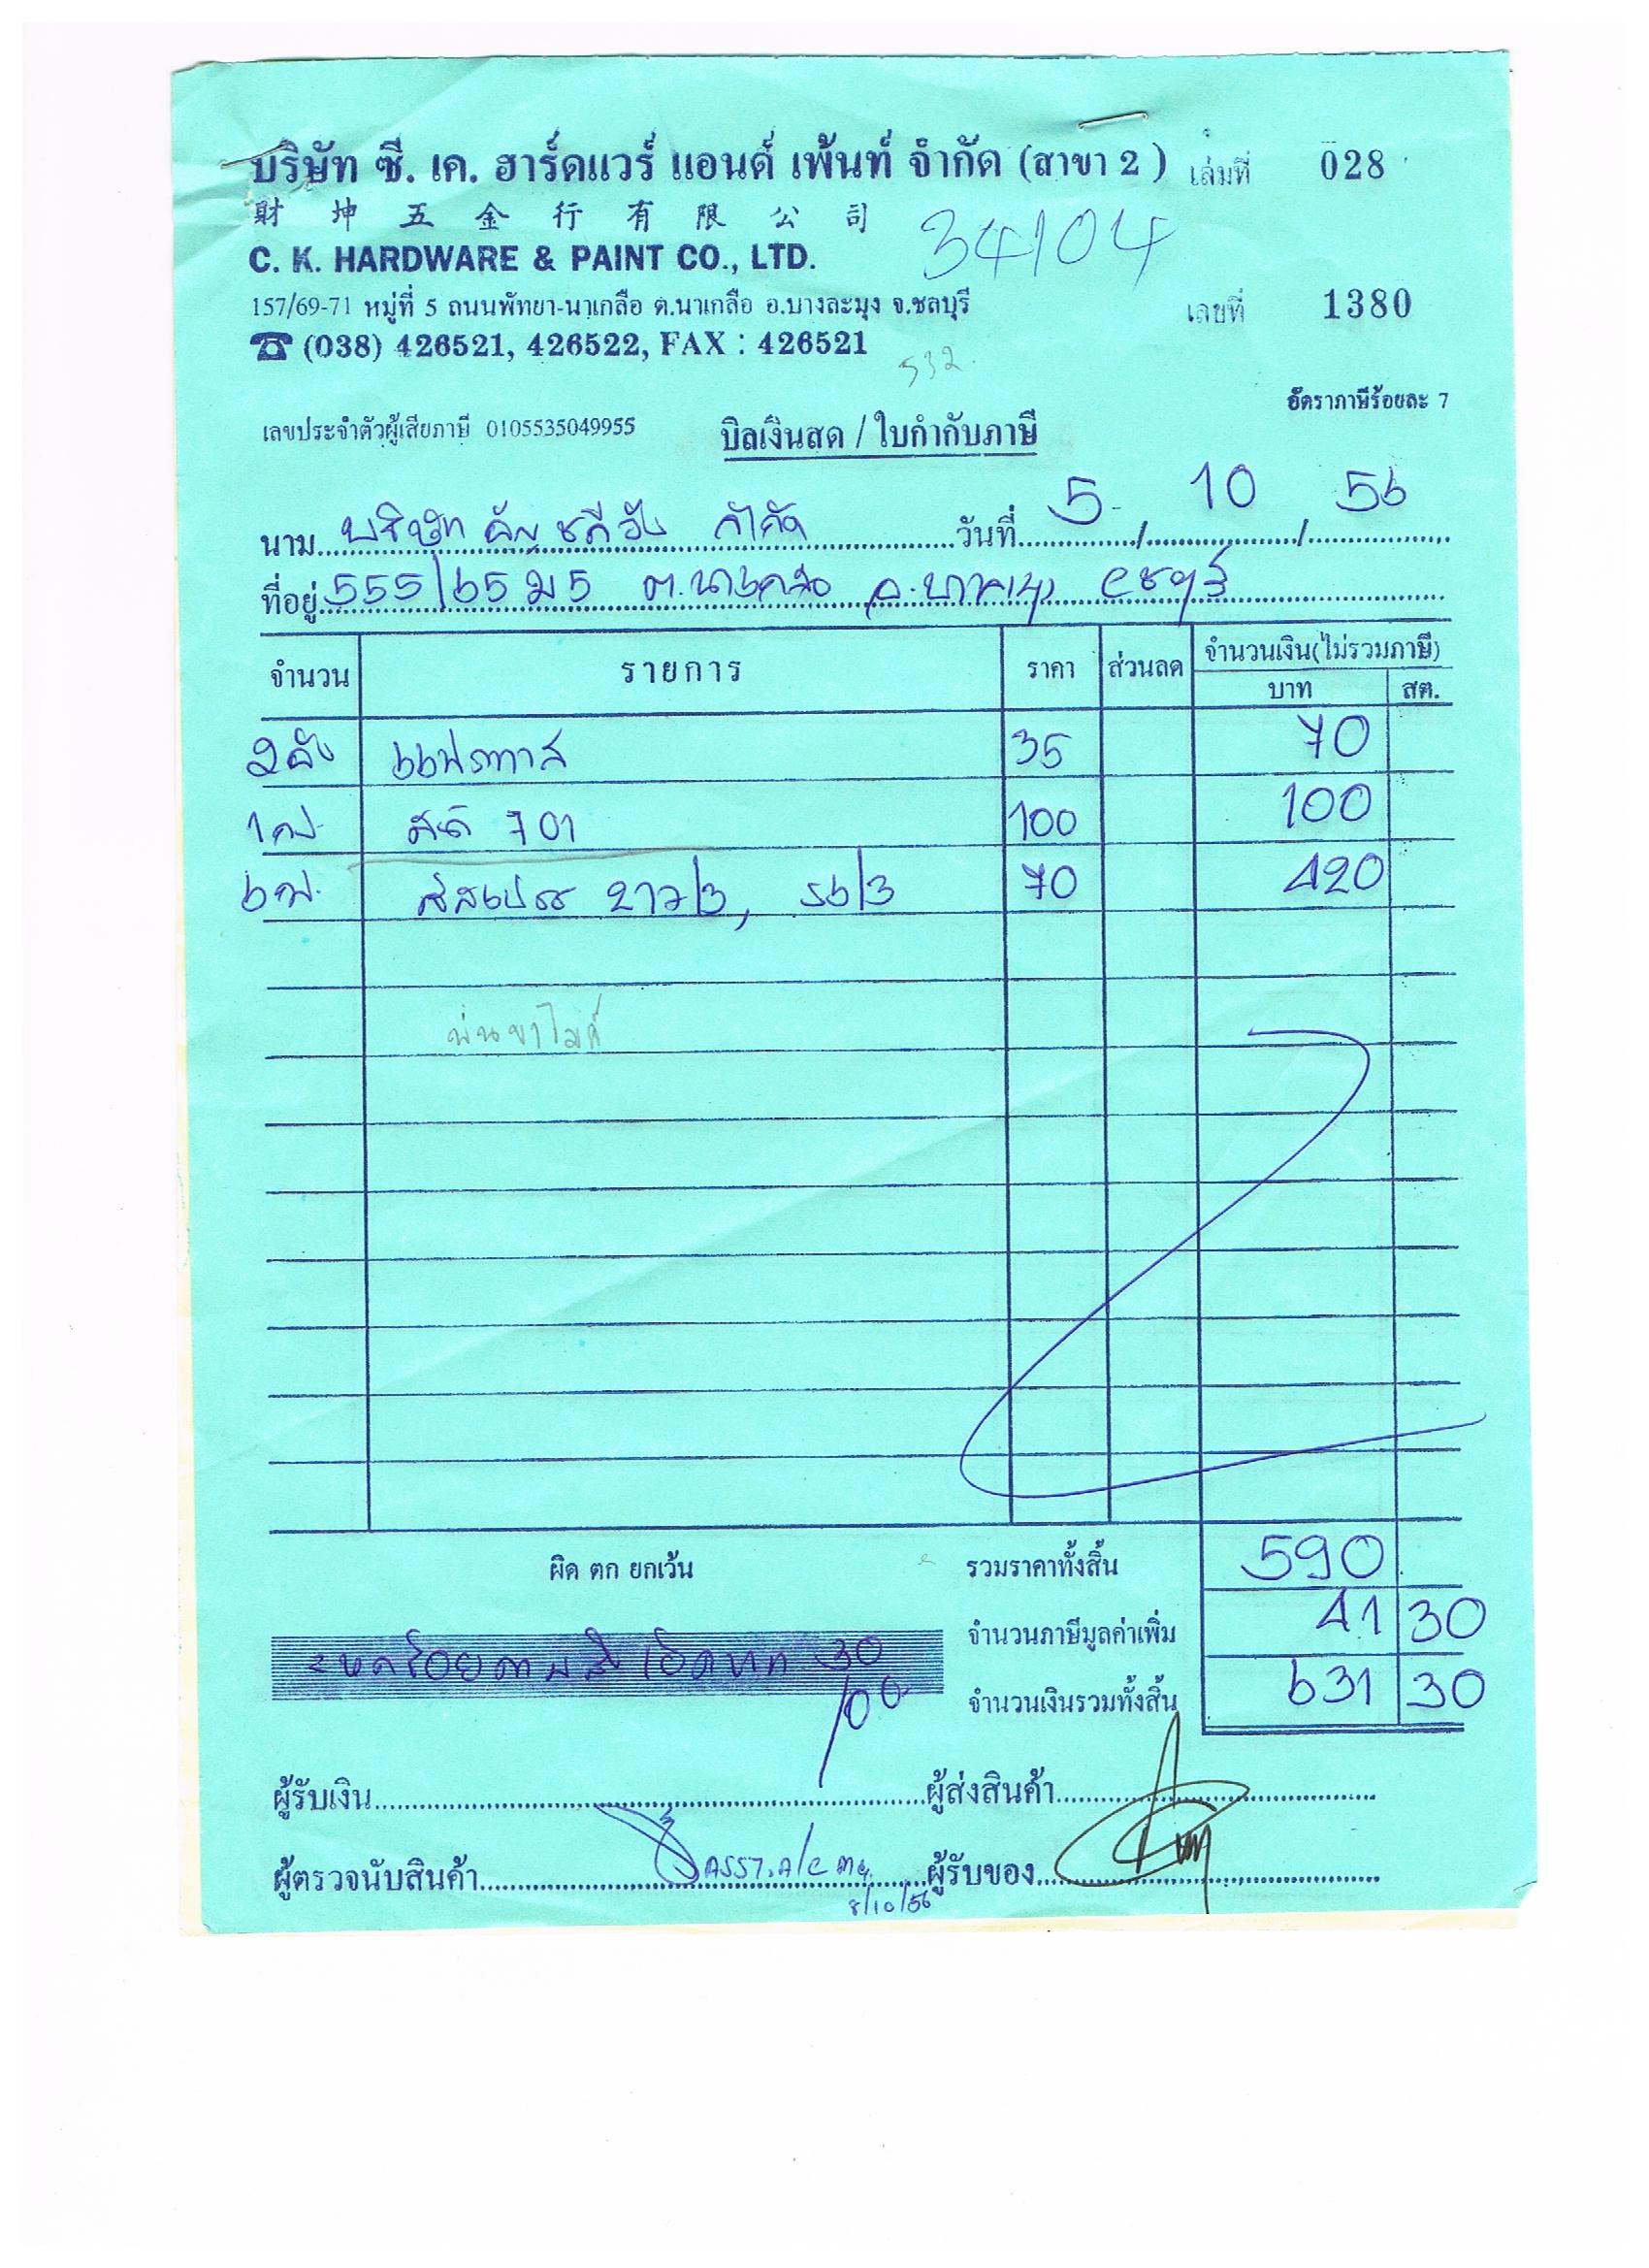 บริษัท ซี. เค. ฮาร์ดแวร์ แอนด์ เพ้นท์ จำกัด (สาขา 2 ) เล่มที่ 028
財 坤 五 金 行 有 限 公 司
34/04
C. K. HARDWARE & PAINT CO., LTD.
157/69-71 หมู่ที่ 5 ถนนพัทยา-นาเกลือ ต.นาเกลือ อ.บางละมุง จ.ชลบุรี เลขที่ 1380
☎ (038) 426521, 426522, FAX : 426521
532.
อัตราภาษีร้อยละ 7
เลขประจำตัวผู้เสียภาษี 0105535049955 บิลเงินสด / ใบกำกับภาษี
นาม บริษัท จำกัด วันที่ 5 / 10 / 56
ที่อยู่ 555/65 ม 5 ต.นาเกลือ อ.บางละมุง จ.ชลบุรี
จำนวน รายการ ราคา ส่วนลด จำนวนเงิน(ไม่รวมภาษี)
บาท สต.
35 70
701 100 100
6 สีสเปรย์ ขาว/3, 56/3 70 420
พ่นขาไมค์
ผิด ตก ยกเว้น รวมราคาทั้งสิ้น 590
จำนวนภาษีมูลค่าเพิ่ม 41 30
=หกร้อยสามสิบเอ็ดบาท 30/00
จำนวนเงินรวมทั้งสิ้น 631 30
ผู้รับเงิน ผู้ส่งสินค้า
ผู้ตรวจนับสินค้า ASST. A/C ผู้รับของ
8/10/56